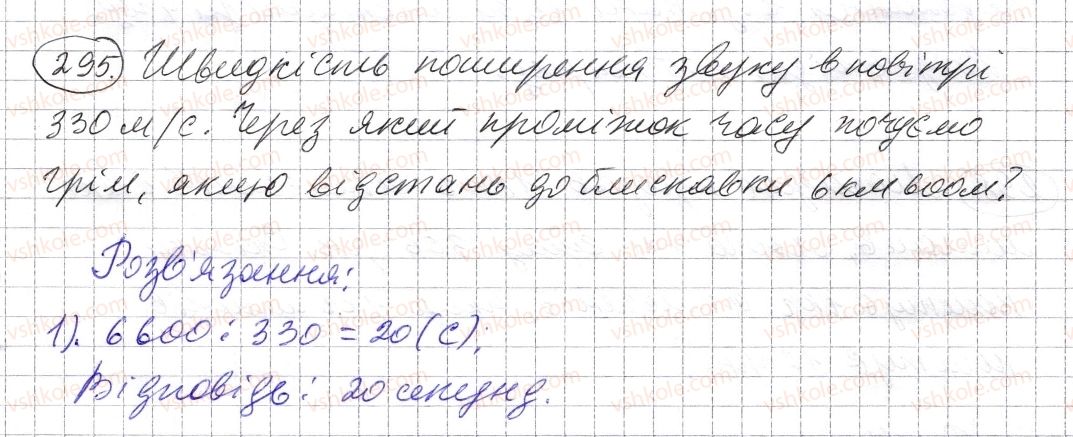 295. Швидкість поширення звуку в повітрі
330 м/с. Через який проміжок часу почуємо
грім, якщо відстань до блискавки 6 км 600 м?
Розв'язання:
1). 6600 : 330 = 20 (с);
Відповідь: 20 секунд.